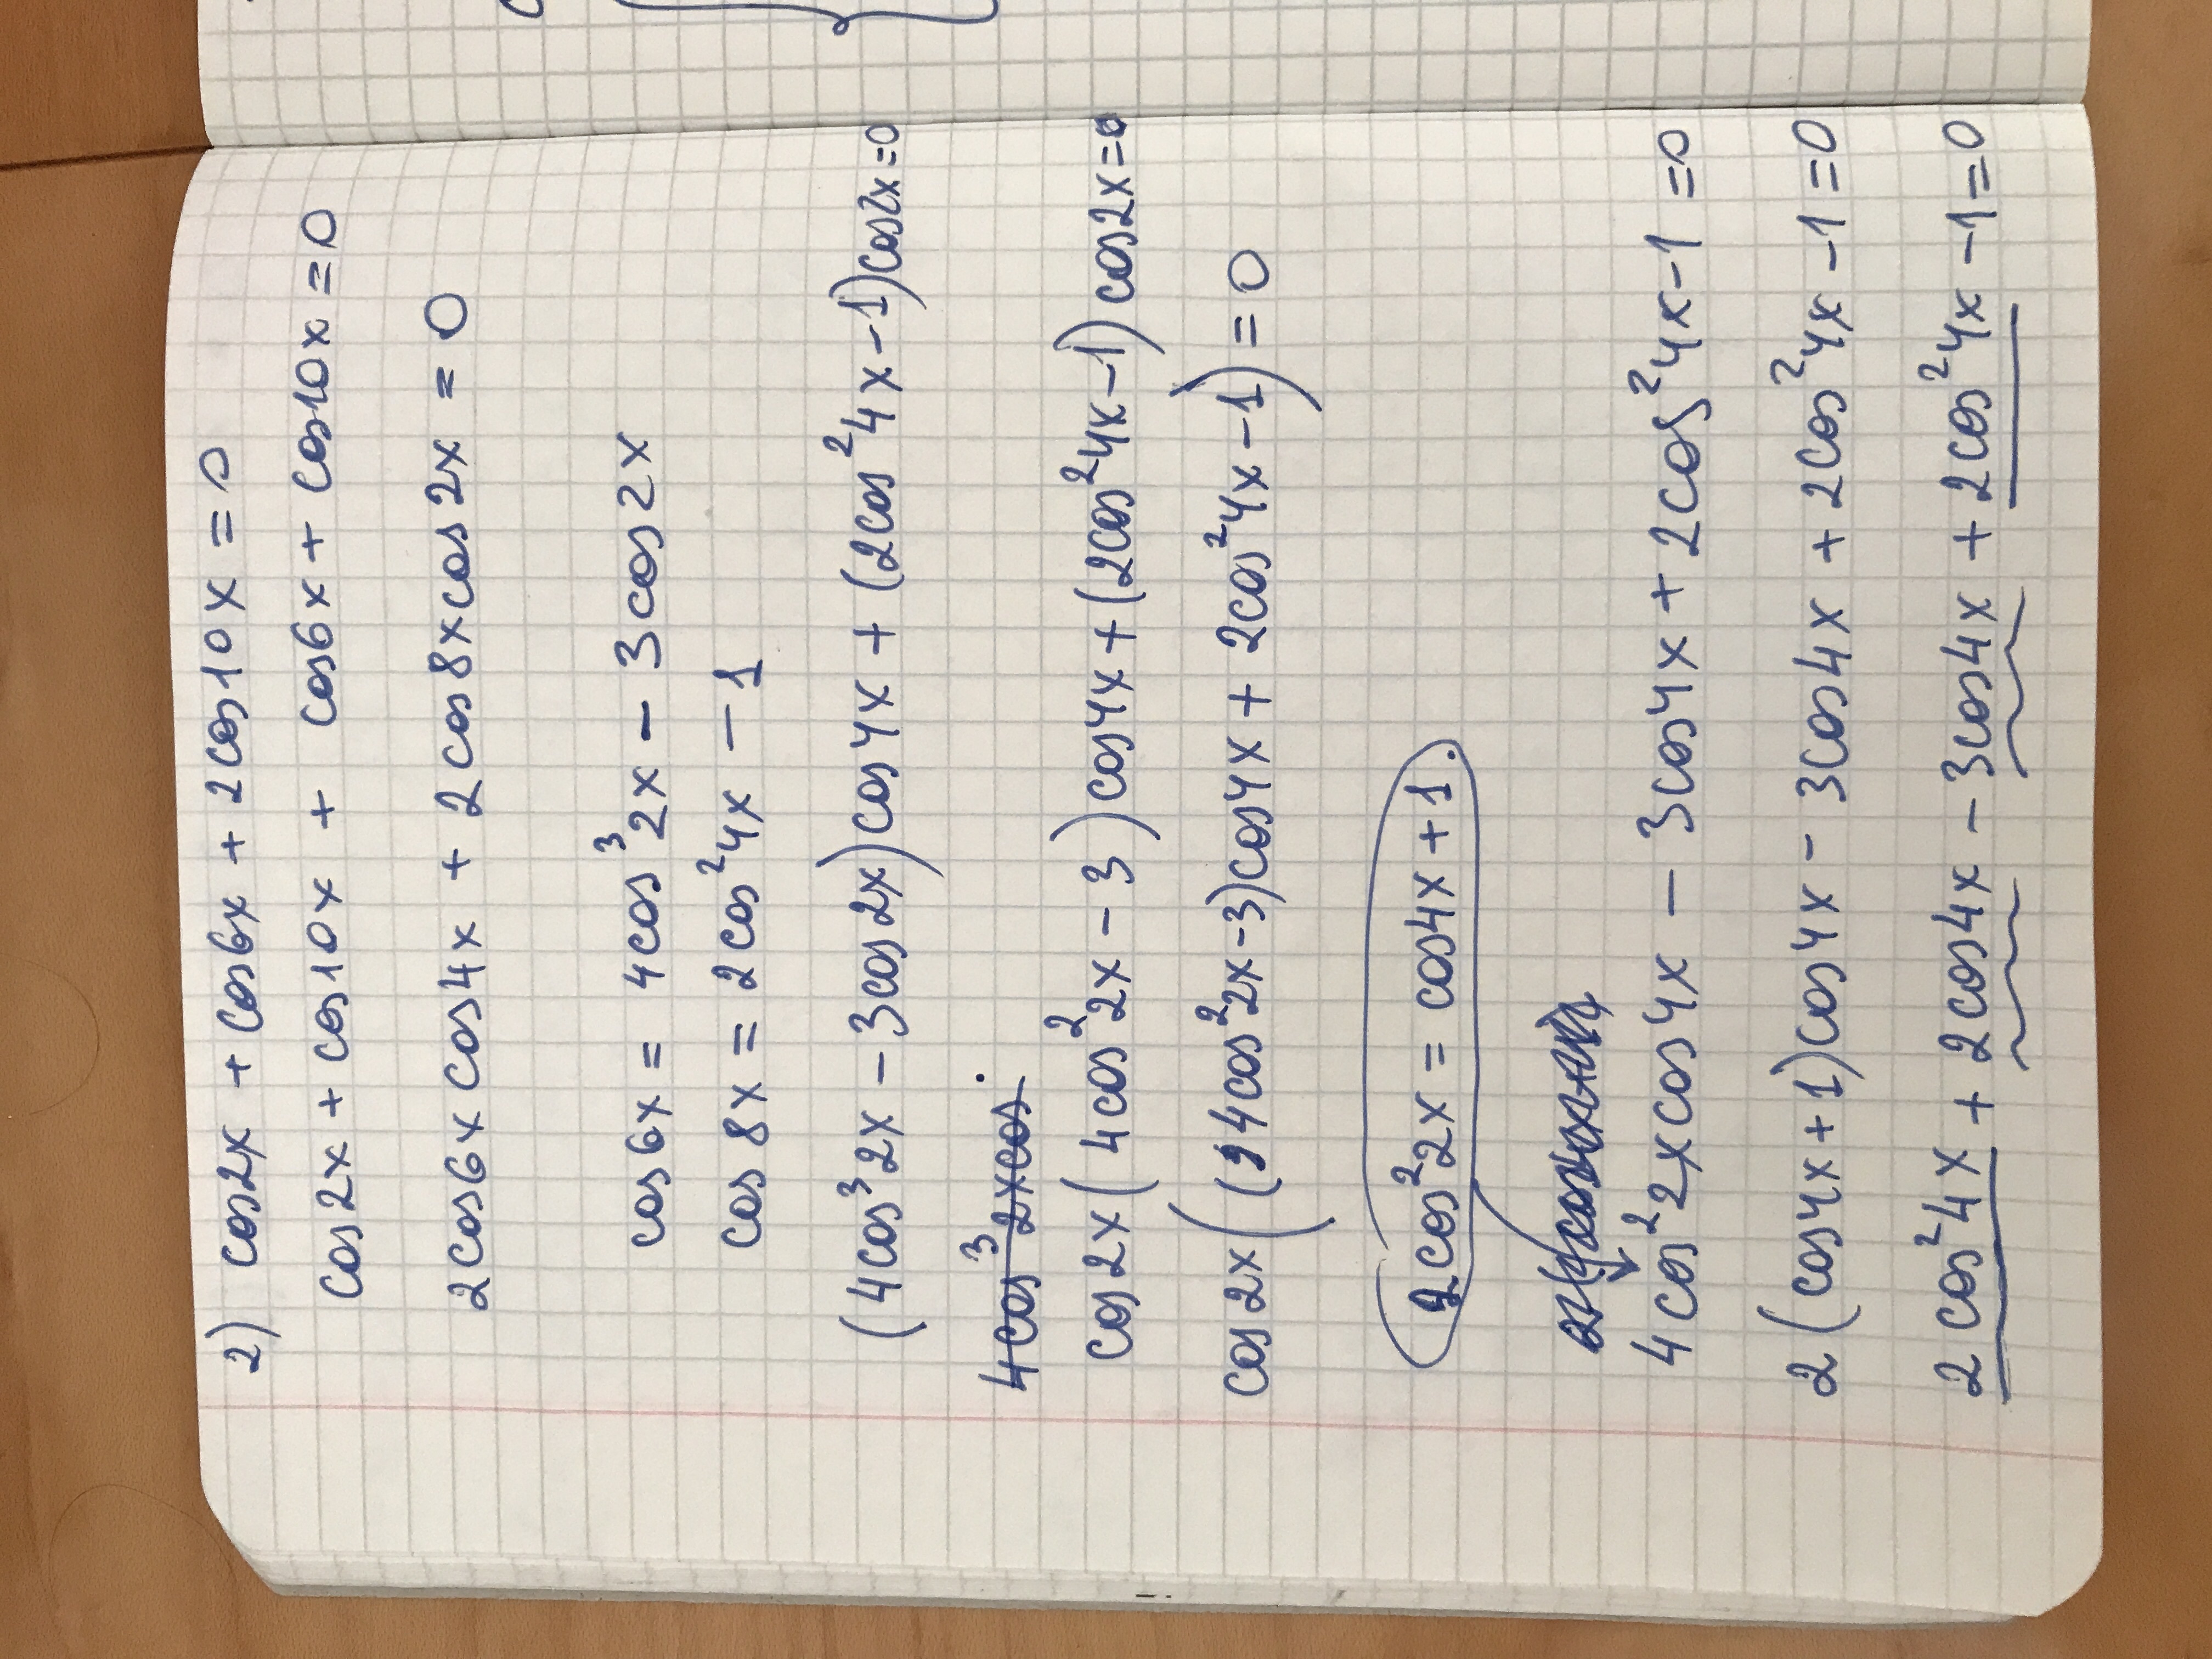 2) cos2x + cos6x + 2cos10x = 0
cos2x + cos10x + cos6x + cos10x = 0
2cos6xcos4x + 2cos8xcos2x = 0
cos6x = 4cos³2x - 3cos2x
cos8x = 2cos²4x - 1
(4cos³2x - 3cos2x)cos4x + (2cos²4x - 1)cos2x = 0
4cos³2xcos
cos2x(4cos²2x - 3)cos4x + (2cos²4x - 1)cos2x = 0
cos2x((4cos²2x - 3)cos4x + 2cos²4x - 1) = 0
2cos²2x = cos4x + 1.
4cos²2xcos4x - 3cos4x + 2cos²4x - 1 = 0
2(cos4x + 1)cos4x - 3cos4x + 2cos²4x - 1 = 0
2cos²4x + 2cos4x - 3cos4x + 2cos²4x - 1 = 0